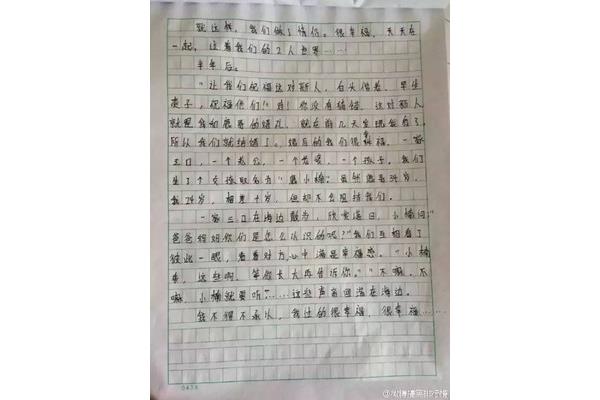 就这样，我们做了情侣。很幸福，天天在
一起，过着我们的2人世界……
半年后。
"让我们祝福这对丽人，白头偕老，早生
贵子，祝福他们！"对！你没有猜错，这对丽人
就是我和鹿晗的婚礼，就在前几天发现我有了，
所以我们就结婚了。婚后的我们很幸福，一家
三口，一个老公，一个老婆，一个孩子。我们
生了个女孩取名为"鹿小楠"虽然鹿晗34岁，
我24岁，相差十岁，但却不会阻挡我们。
一家三口在海边散步，欣赏落日，小楠问："
爸爸妈妈你们是怎么认识的呢？"我们互相看了
彼此一眼，看着对方，心中满是幸福感。"小楠
乖，这些啊，等你长大再告诉你。""不嘛，不
嘛，小楠就要听。"……这些声音回荡在海边。
我不得不承认，我过的很幸福，很幸福……